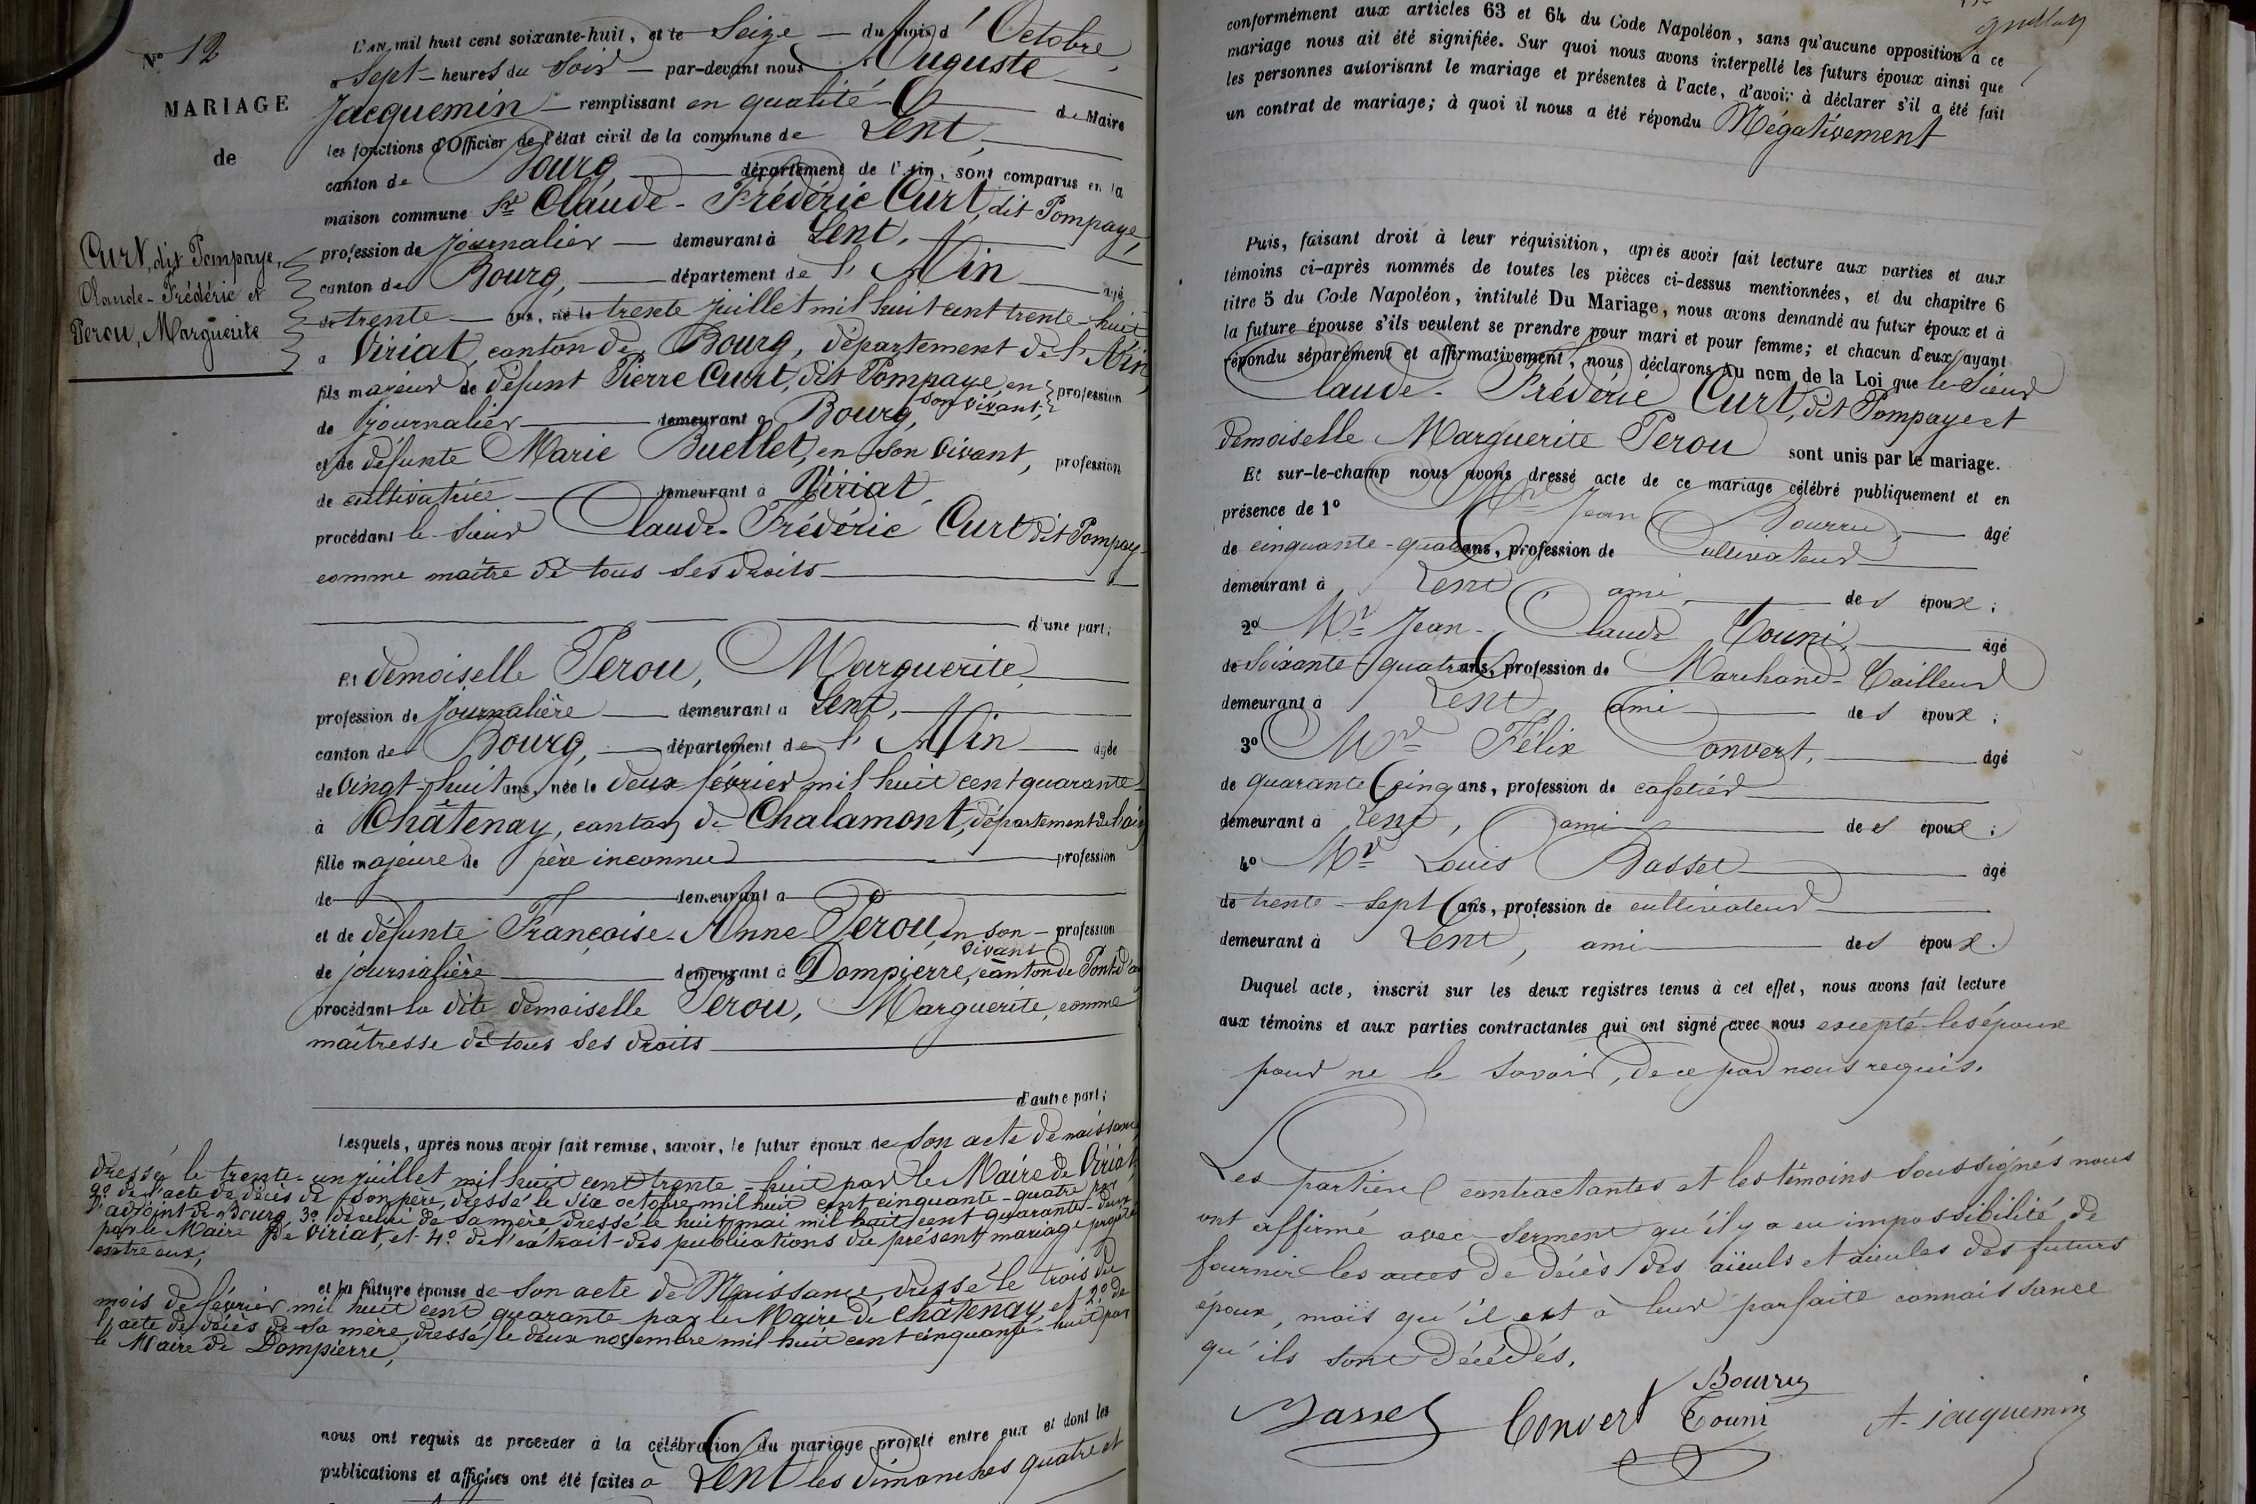 N° 12
MARIAGE
de
Curt, dit Pompaye,
Claude-Frédéric et
Perou, Marguerite
L'AN mil huit cent soixante-huit, et le Seize du mois d'Octobre,
à Sept heures du Soir par-devant nous Auguste
Jacquemin remplissant en qualité de Maire
les fonctions d'Officier de l'état civil de la commune de Lent,
canton de Bourg, département de l'Ain, sont comparus en la
maison commune Sr Claude-Frédéric Curt, dit Pompaye,
profession de journalier demeurant à Lent,
canton de Bourg, département de l'Ain âgé
de trente ans, né le trente juillet mil huit cent trente-huit
à Viriat, canton de Bourg, département de l'Ain,
fils majeur de défunt Pierre Curt, dit Pompaye, en son vivant, profession
de journalier demeurant à Bourg,
et de défunte Marie Buellet, en son vivant, profession
de cultivatrice demeurant à Viriat,
procédant le sieur Claude-Frédéric Curt dit Pompaye
comme maître de tous ses droits
d'une part;
Et demoiselle Perou, Marguerite,
profession de journalière demeurant à Lent,
canton de Bourg, département de l'Ain âgée
de vingt-huit ans, née le deux février mil huit cent quarante
à Châtenay, canton de Chalamont, département de l'ain
fille majeure de père inconnu profession
de demeurant à
et de défunte Françoise-Anne Perou, en son vivant profession
de journalière demeurant à Dompierre, canton de Pont-d'ain
procédant la dite demoiselle Perou, Marguerite, comme
maîtresse de tous ses droits
d'autre part;
Lesquels, après nous avoir fait remise, savoir, le futur époux de son acte de naissance
dressé le trente-un juillet mil huit cent trente-huit par le Maire de Viriat,
2° de l'acte de décès de son père, dressé le six octobre mil huit cent cinquante-quatre par
l'adjoint de Bourg 3° de celui de sa mère dressé le huit mai mil huit cent quarante-deux
par le Maire de Viriat, et 4° de l'extrait des publications du présent mariage projeté
entre eux;
et la future épouse de son acte de Naissance, dressé le trois du
mois de février mil huit cent quarante par le Maire de Châtenay, et 2° de
l'acte de décès de sa mère, dressé le deux novembre mil huit cent cinquante-huit par
le Maire de Dompierre,
nous ont requis de procéder à la célébration du mariage projeté entre eux et dont les
publications et affiches ont été faites à Lent les dimanches quatre et
conformément aux articles 63 et 64 du Code Napoléon, sans qu'aucune opposition à ce
mariage nous ait été signifiée. Sur quoi nous avons interpellé les futurs époux ainsi que
les personnes autorisant le mariage et présentes à l'acte, d'avoir à déclarer s'il a été fait
un contrat de mariage; à quoi il nous a été répondu Négativement
Puis, faisant droit à leur réquisition, après avoir fait lecture aux parties et aux
témoins ci-après nommés de toutes les pièces ci-dessus mentionnées, et du chapitre 6
titre 5 du Code Napoléon, intitulé Du Mariage, nous avons demandé au futur époux et à
la future épouse s'ils veulent se prendre pour mari et pour femme; et chacun d'eux ayant
répondu séparément et affirmativement, nous déclarons Au nom de la Loi que le Sieur
Claude-Frédéric Curt, dit Pompaye et
demoiselle Marguerite Perou sont unis par le mariage.
Et sur-le-champ nous avons dressé acte de ce mariage célébré publiquement et en
présence de 1° Mr Jean Bourru, âgé
de cinquante-quatre ans, profession de Cultivateur
demeurant à Lent ami des époux;
2° Mr Jean-Claude Touni, âgé
de Soixante-quatre ans, profession de Marchand-Tailleur
demeurant à Lent, ami des époux;
3° Mr Félix Convert, âgé
de quarante-cinq ans, profession de cafetier
demeurant à Lent, ami des époux;
4° Mr Louis Basset âgé
de trente-sept ans, profession de cultivateur
demeurant à Lent, ami des époux.
Duquel acte, inscrit sur les deux registres tenus à cet effet, nous avons fait lecture
aux témoins et aux parties contractantes qui ont signé avec nous excepté les époux
pour ne le savoir, de ce par nous requis.
Les parties contractantes et les témoins soussignés nous
ont affirmé avec serment qu'il y a eu impossibilité de
fournir les actes de décès des aïeuls et aïeules des futurs
époux, mais qu'il est à leur parfaite connaissance
qu'ils sont décédés.
Bourru
Basset Convert Touni A. jacquemin